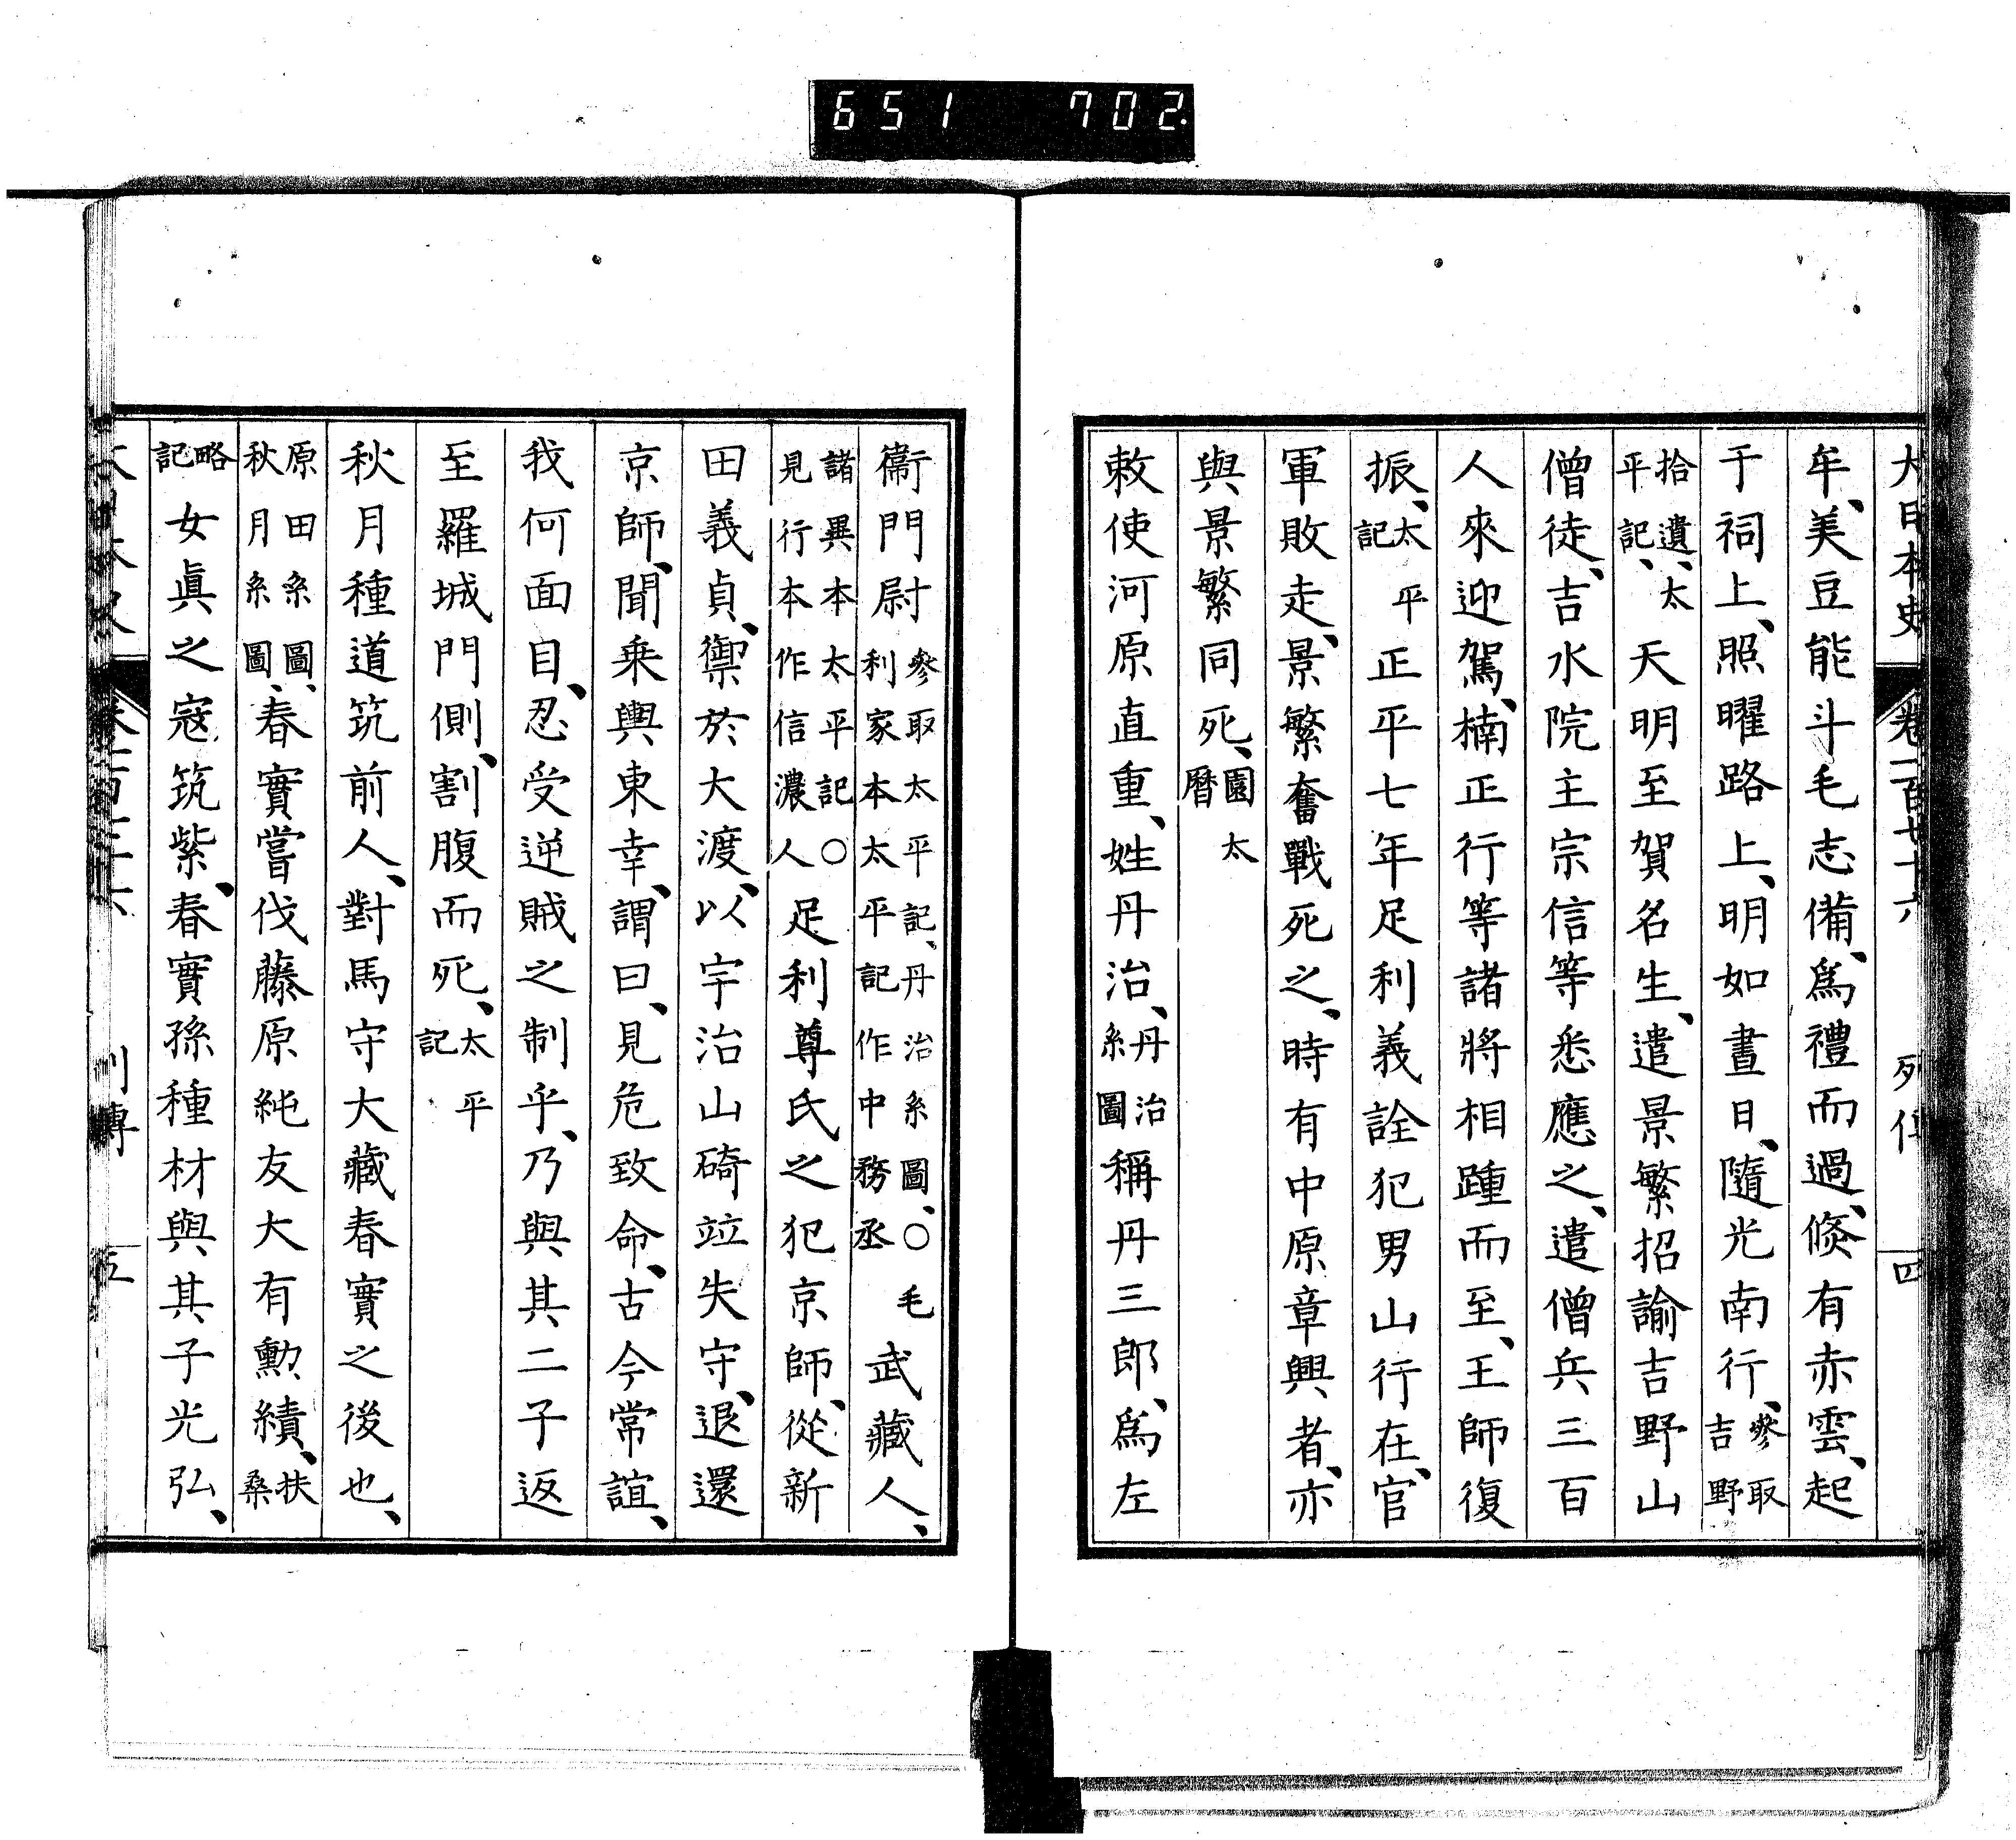 651 702
大日本史 卷一百七十六 列傳 四
牟、美豆能斗毛志備、爲禮而過、倐有赤雲、起
于祠上、照曜路上、明如晝日、隨光南行、參取吉野
拾遺、太平記、天明至賀名生、遣景繁招諭吉野山
僧徒、吉水院主宗信等悉應之、遣僧兵三百
人來迎駕、楠正行等諸將相踵而至、王師復
振、太平記正平七年足利義詮犯男山行在、官
軍敗走、景繁奮戰死之、時有中原章興者、亦
與景繁同死、園太曆
敕使河原直重、姓丹治、丹治系圖稱丹三郎、爲左
衞門尉參取太平記、丹治系圖、○毛利家本太平記作中務丞武藏人、
諸異本太平記○見行本作信濃人足利尊氏之犯京師、從新
田義貞、禦於大渡、以宇治山碕竝失守、退還
京師、聞乘輿東幸、謂曰、見危致命、古今常誼、
我何面目、忍受逆賊之制乎、乃與其二子返
至羅城門側、割腹而死、太平記
秋月種道筑前人、對馬守大藏春實之後也、
原田系圖、秋月系圖、春實嘗伐藤原純友大有勳績、扶桑
略記女眞之寇筑紫、春實孫種材與其子光弘、
列傳 五